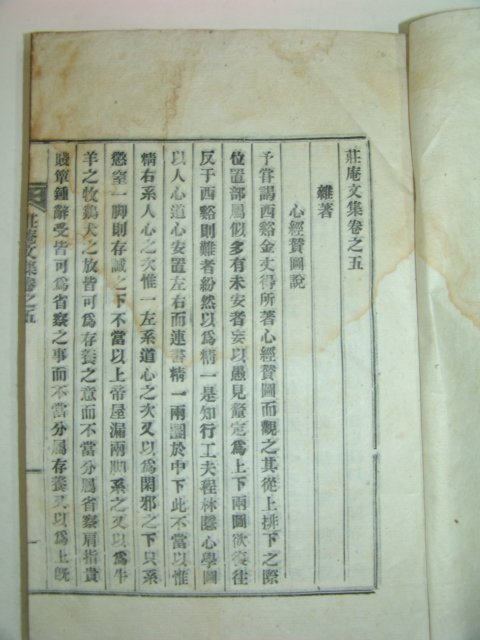 莊庵文集卷之五
雜著
心經贊圖說
予嘗謁西谿金丈得所著心經贊圖而觀之其從上排下之際
位置部屬似多有未安者妄以愚見釐定爲上下兩圖欲復往
反于西谿則難者紛然以爲精一是知行工夫程林隱心學圖
以人心道心安置左右而連書精一兩圈於中下此不當以惟
精右系人心之次惟一左系道心之次又以爲閑邪之下只系
懲窒一脚則存誠之下不當以上帝屋漏兩脚系之又以爲牛
羊之牧鷄犬之放皆可爲存養之意而不當分屬省察肩指貴
賤簞鍾辭受皆可爲省察之事而不當分屬存養又以爲上旣
莊庵文集卷之五